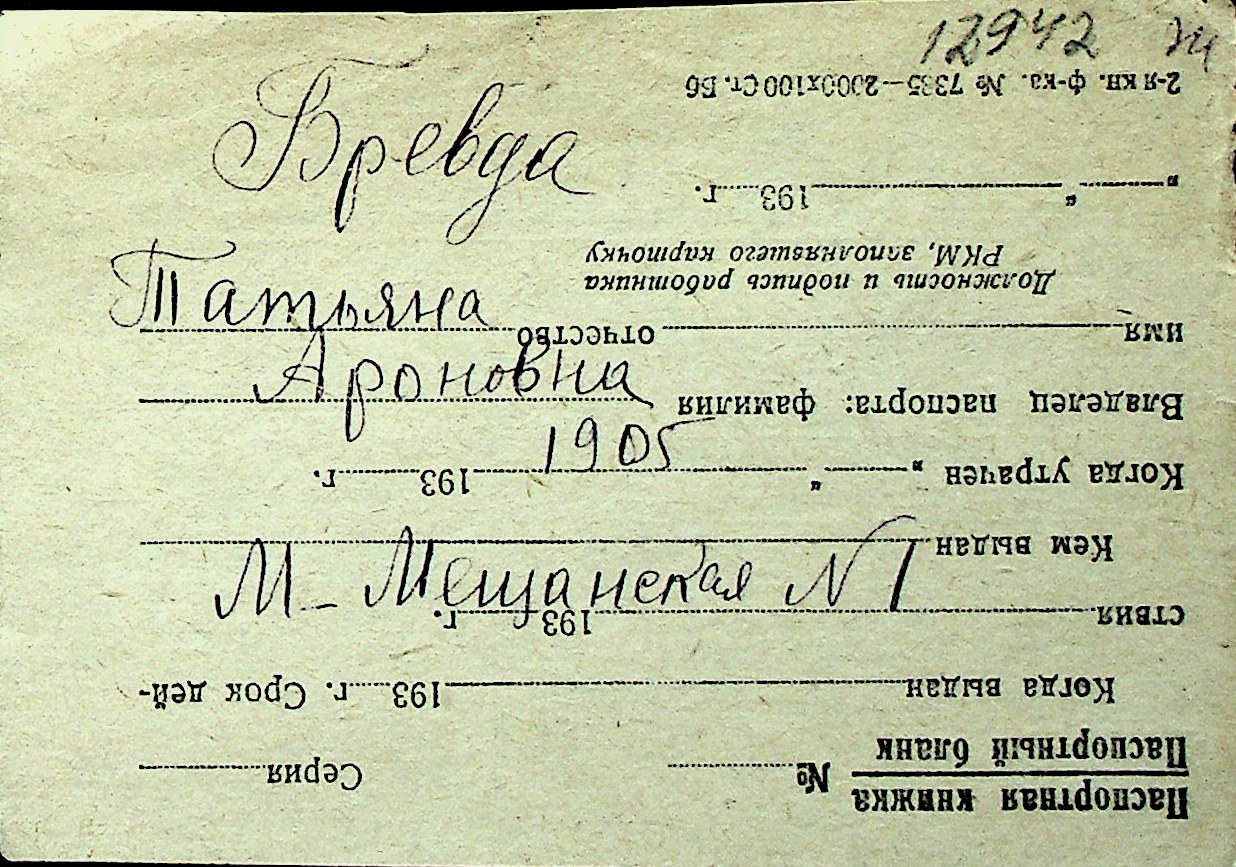 12942
Бревда
Татьяна
Ароновна
1905
М-Мещанская N 1
Паспортная книжка
Паспортный бланк
№ Серия
Когда выдан 193 г. Срок дей-
ствия 193 г.
Кем выдан
Когда утрачен „ “ 193 г.
Владелец паспорта: фамилия
имя отчество
Должность и подпись работника
РКМ, заполнявшего карточку
„ “ 193 г.
2-я кн. ф-ка. № 7335—2000х100 Ст. Б6